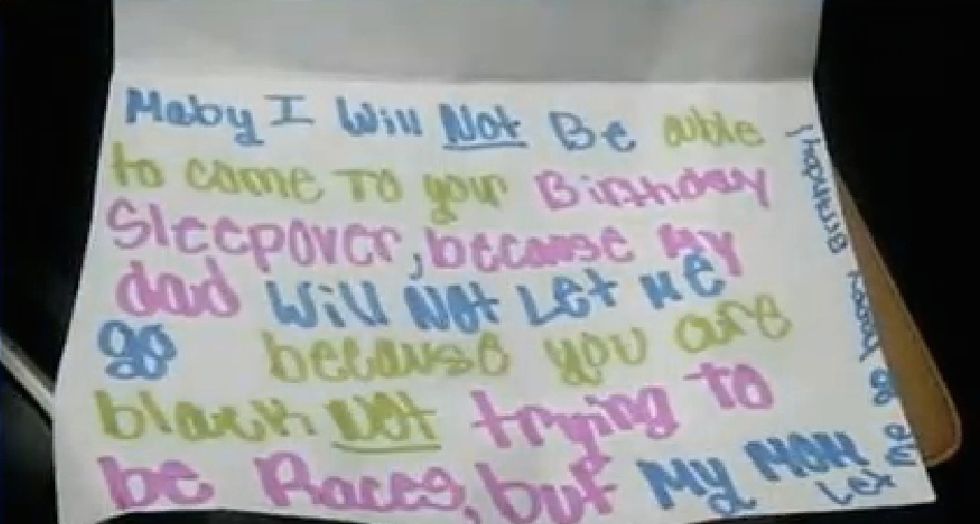 Maby I Will Not Be able
to come To your Birthday
Sleepover, because My
dad Will Not Let Me
go because you are
black Not trying to
be Races, but My MOM
Let
Me go Happy Birthday!